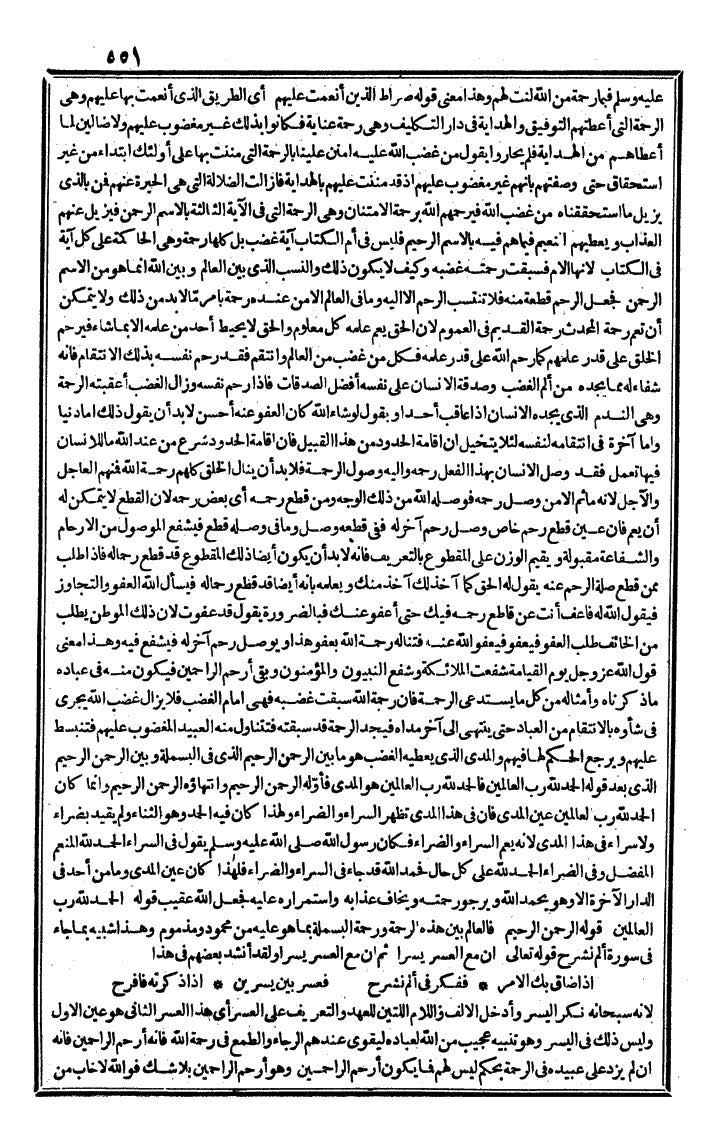 ٥٥١
عليه وسلم فبما رحمة من الله لنت لهم وهذا معنى قوله صراط الذين أنعمت عليهم أى الطريق الذى أنعمت بها عليهم وهى
الرحمة التى أعطتهم التوفيق والهداية فى دار التكليف وهى رحمة عناية فكانوا بذلك غير مغضوب عليهم ولا ضالين لما
أعطاهم من الهداية فلم يحاروا يقول من غضب الله عليه امنن علينا بالرحمة التى مننت بها على أولئك ابتداء من غير
استحقاق حتى وصفتهم بانهم غير مغضوب عليهم اذ قد مننت عليهم بالهداية فازالت الضلالة التى هى الحيرة عنهم فمن بالذى
يزيل ما استحققناه من غضب الله فيرحمهم الله برحمة الامتنان وهى الرحمة التى فى الآية الثالثة بالاسم الرحمن فيزيل عنهم
العذاب ويعطيهم النعيم فيما هم فيه بالاسم الرحيم فليس فى أم الكتاب آية غضب بل كلها رحمة وهى الحاكمة على كل آية
فى الكتاب لانها الام فسبقت رحمته غضبه وكيف لا يكون ذلك والنسب الذى بين العالم وبين الله انما هو من الاسم
الرحمن فجعل الرحم قطعة منه فلا تنتسب الرحم الا اليه وما فى العالم الا من عنده رحمة بامر ما لا بد من ذلك ولا يتمكن
أن تعم رحمة المحدث رحمة القديم فى العموم لان الحق يعم علمه كل معلوم والحق لا يحيط أحد من علمه الا بما شاء فيرحم
الخلق على قدر علمهم كما رحم الله على قدر علمه فكل من غضب من العالم وانتقم فقد رحم نفسه بذلك الانتقام فانه
شفاء له مما يجده من ألم الغضب وصدقة الانسان على نفسه أفضل الصدقات فاذا رحم نفسه وزال الغضب أعقبته الرحمة
وهى الندم الذى يجده الانسان اذا عاقب أحدا ويقول لو شاء الله كان العفو عنه أحسن لا بد أن يقول ذلك اما دنيا
واما آخرة فى انتقامه لنفسه لئلا يتخيل ان اقامة الحدود من هذا القبيل فان اقامة الحدود شرع من عند الله ما للانسان
فيها تعمل فقد وصل الانسان بهذا الفعل رحمه واليه وصول الرحمة فلا بد أن ينال الخلق كلهم رحمة الله فمنهم العاجل
والآجل لانه ما ثم الا من وصل رحمه فوصله الله من ذلك الوجه ومن قطع رحمه أى بعض رحمه لان القطع لا يتمكن له
أن يعم فان عين قطع رحم خاص وصل رحم آخر له ففى قطعه وصل وما فى وصله قطع فيشفع الموصول من الارحام
والشفاعة مقبولة ويقيم الوزن على المقطوع بالتعريف فانه لا بد أن يكون أيضا ذلك المقطوع قد قطع رحما له فاذا طلب
ممن قطع صلة الرحم عنه يقول له الحق كما أخذ لك أخذ منك ويعلمه بانه أيضا قد قطع رحما له فيسأل الله العفو والتجاوز
فيقول الله له فاعف أنت عن قاطع رحمه فيك حتى أعفو عنك فبالضرورة يقول قد عفوت لان ذلك الموطن يطلب
من الخائف طلب العفو فيعفو فيعفو الله عنه فتناله رحمة الله بعفو هذا ويوصل رحم آخر له فيشفع فيه وهذا معنى
قول الله عز وجل يوم القيامة شفعت الملائكة وشفع النبيون والمؤمنون وبقى أرحم الراحمين فيكون منه فى عباده
ما ذكرناه وأمثاله من كل ما يستدعى الرحمة فان رحمة الله سبقت غضبه فهى امام الغضب فلا يزال غضب الله يجرى
فى شأوه بالانتقام من العباد حتى ينتهى الى آخر مداه فيجد الرحمة قد سبقته فتتناول منه العبيد المغضوب عليهم فتنبسط
عليهم ويرجع الحكم لها فيهم والمدى الذى يعطيه الغضب هو ما بين الرحمن الرحيم الذى فى البسملة وبين الرحمن الرحيم
الذى بعد قوله الحمد لله رب العالمين فالحمد لله رب العالمين هو المدى فأوله الرحمن الرحيم وانتهاؤه الرحمن الرحيم وانما كان
الحمد لله رب العالمين عين المدى فان فى هذا المدى تظهر السراء والضراء ولهذا كان فيه الحمد وهو الثناء ولم يقيد بضراء
ولا سراء فى هذا المدى لانه يعم السراء والضراء فكان رسول الله صلى الله عليه وسلم يقول فى السراء الحمد لله المنعم
المفضل وفى الضراء الحمد لله على كل حال فحمد الله قد جاء فى السراء والضراء فلهذا كان عين المدى وما من أحد فى
الدار الآخرة الا وهو يحمد الله ويرجو رحمته ويخاف عذابه واستمراره عليه فجعل الله عقيب قوله الحمد لله رب
العالمين قوله الرحمن الرحيم فالعالم بين هذه الرحمة ورحمة البسملة بما هو عليه من محمود ومذموم وهذا شبيه بما جاء
فى سورة ألم نشرح قوله تعالى ان مع العسر يسرا ثم ان مع العسر يسرا ولقد أنشد بعضهم فى هذا
اذا ضاق بك الامر * ففكر فى ألم نشرح فعسر بين يسرين * اذا ذكرته فافرح
لانه سبحانه نكر اليسر وأدخل الالف واللام اللتين للعهد والتعريف على العسر أى هذا العسر الثانى هو عين الاول
وليس ذلك فى اليسر وهو تنبيه عجيب من الله لعباده ليقوى عندهم الرجاء والطمع فى رحمة الله فانه أرحم الراحمين فانه
ان لم يزد على عبيده فى الرحمة بحكم ليس لهم فما يكون أرحم الراحمين وهو أرحم الراحمين بلا شك فوالله لا خاب من